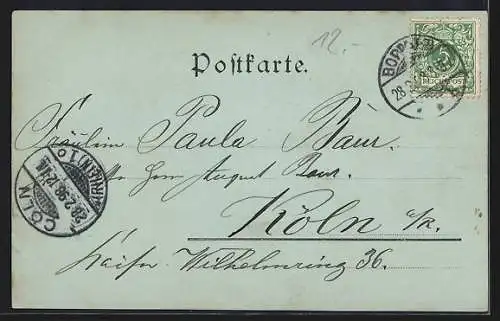 12.-
Postkarte.
BOPPARD
28 2
REICHSPOST
Fräulein Paula Baur.
Herrn August Baur.
Köln a/R.
Kaiser Wilhelmring 36.
CÖLN
28.2.98
(RHEIN) 1